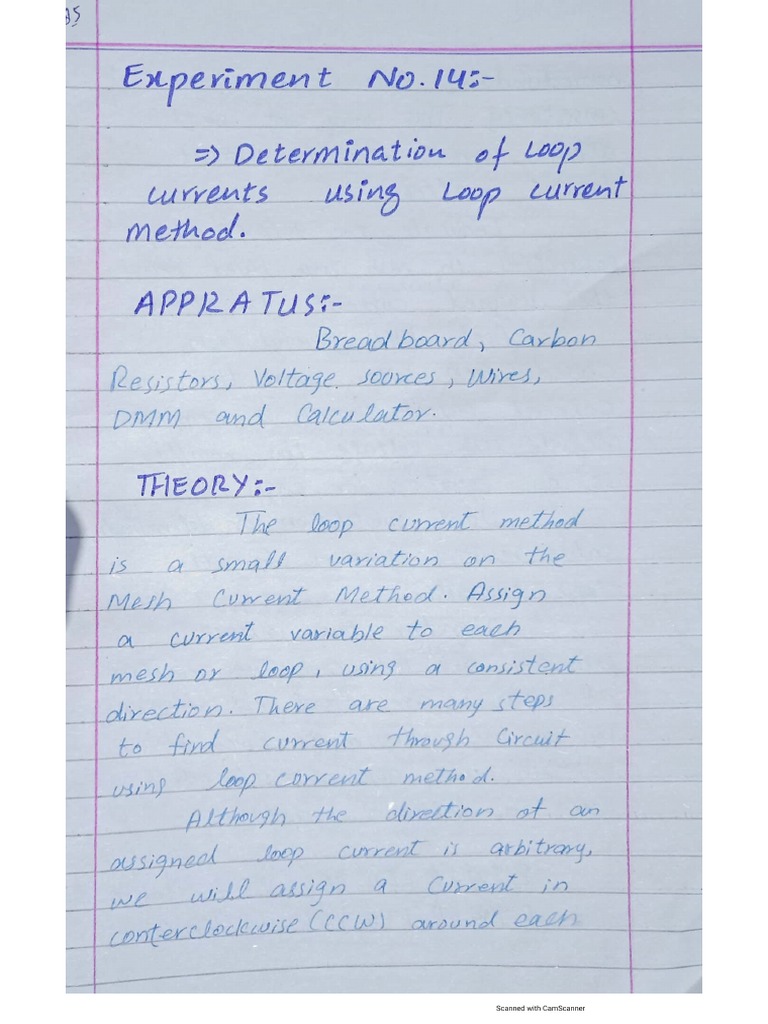 Experiment No.14:-
=> Determination of Loop
currents using Loop current
method.
APPRATUS:-
Breadboard, Carbon
Resistors, Voltage sources, Wires,
DMM and Calculator.
THEORY:-
The loop current method
is a small variation on the
Mesh Current Method. Assign
a current variable to each
mesh or loop, using a consistent
direction. There are many steps
to find current through Circuit
using loop corrent method.
Although the direction of an
assigned loop current is arbitrary,
we will assign a current in
conterclockwise (CCW) around each
Scanned with CamScanner